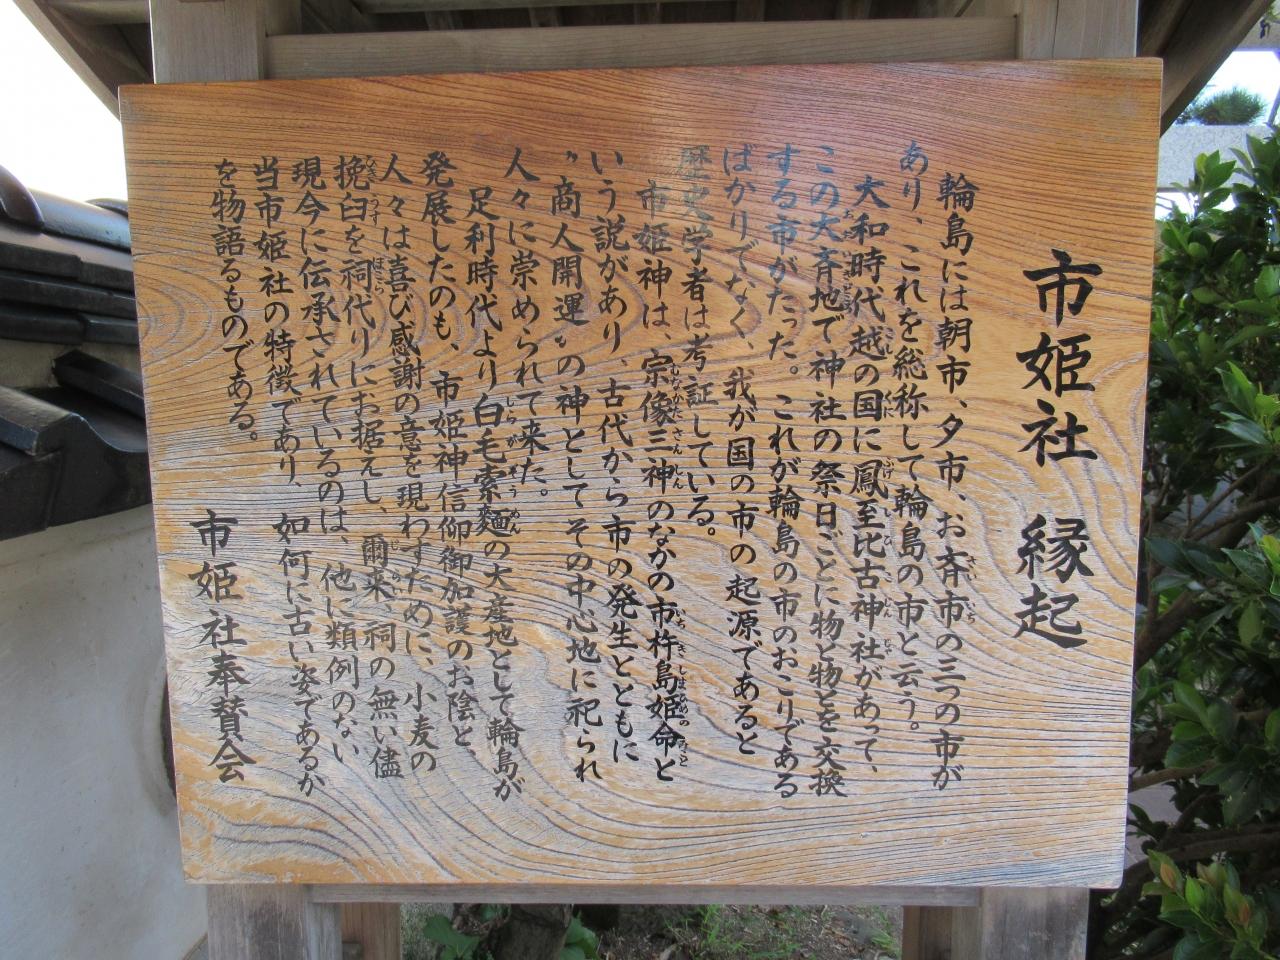 市姫社 縁起
輪島には朝市、夕市、お斉市の三つの市が
あり、これを総称して輪島の市と云う。
大和時代越の国に鳳至比古神社があって、
この大斉地で神社の祭日ごとに物と物とを交換
する市がたった。これが輪島の市のおこりである
ばかりでなく、我が国の市の起源であると
歴史学者は考証している。
市姫神は、宗像三神のなかの市杵島姫命と
いう説があり、古代から市の発生とともに
〝商人開運〟の神としてその中心地に祀られ
人々に崇められて来た。
足利時代より白毛索麺の大産地として輪島が
発展したのも、市姫神信仰御加護のお陰と
人々は喜び感謝の意を現わすために、小麦の
挽臼を祠代りにお据えし、爾来、祠の無い儘
現今に伝承されているのは、他に類例のない
当市姫社の特徴であり、如何に古い姿であるか
を物語るものである。
市姫社奉賛会